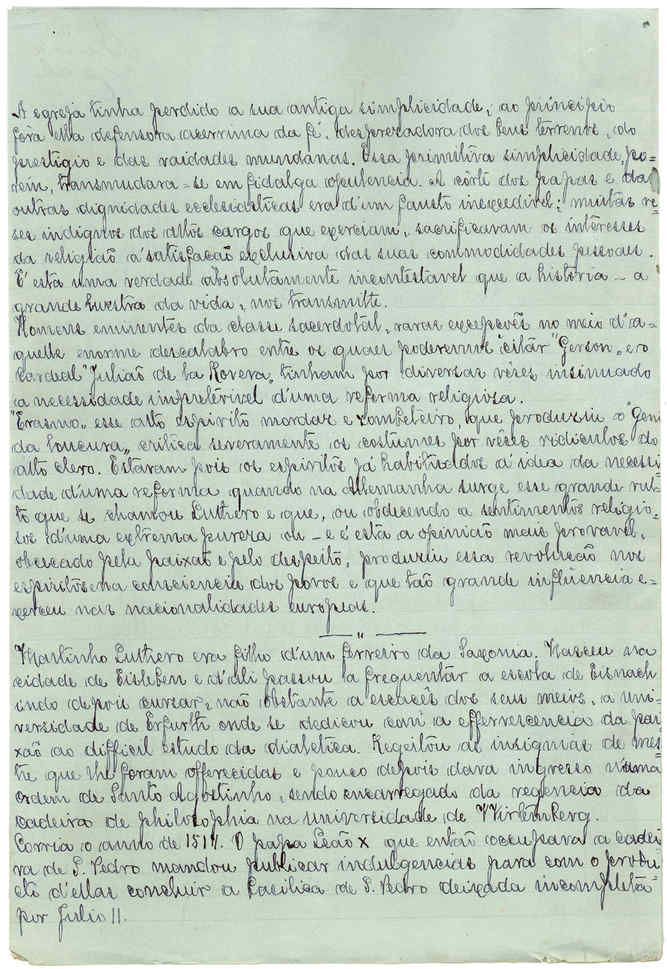 A egreja tinha perdido a sua antiga simplicidade, ao principio
fôra ella defensora acerrima da fé, desprezadora dos bens terrenos, do
prestigio e das vaidades mundanas. Essa primitiva simplicidade, po-
rem, transmudara-se em fidalga opulencia. A côrte dos papas e das
outras dignidades ecclesiasticas era d'um fausto inexcedivel; muitas ve-
ses indignos dos altos cargos que exerciam, sacrificavam os interesses
da religião á satisfação exclusiva das suas commodidades pessoaes.
E' esta uma verdade absolutamente incontestavel que a historia - a
grande mestra da vida, nos transmitte.
Homens eminentes da classe sacerdotal, raras excepções no meio d'a-
quelle enorme descalabro entre os quaes poderemos citár "Gerson", e o
Cardeal "Julião de la Rovera", tinham por diversas vêses insinuado
a necessidade impreterivel d'uma reforma religiosa.
"Erasmo", esse alto espirito mordaz e zombeteiro, que produziu o "Genio
da loucura", critica severamente os costumes por vêses ridiculos do
alto clero. Estavam pois os espiritos já habituados á idea da necessi-
dade d'uma reforma quando na Allemanha surge esse grande vul-
to que se chamou Luthero e que, ou obdecendo a sentimentos religio-
sos d'uma extrema pureza ou - e é esta a opinião mais provavel,
obsecado pela paixão e pelo despeito, produziu essa revolução nos
espiritos na consciencia dos povos e que tão grande influencia e-
xerceu nas nacionalidades europeas.
Martinho Luthero era filho d'um ferreiro da Saxonia. Nasceu na
cidade de Eisleben e d'ali passou a frequentar a escola de Eisnach
indo depois cursar, não obstante a escacês dos seus meios, a uni-
versidade de Erfurth onde se dedicou com a effervescencia da pai-
xão ao difficil estudo da dialetica. Regeitou as insignias de mes-
tre que lhe foram offerecidas e pouco depois dava ingresso n'uma
ordem de Santo Agostinho, sendo encarregado da regencia da
cadeira de philosophia na universidade de Wirtemberg.
Corria o anno de 1517. O papa Leão X que então occupava a cadei-
ra de S. Pedro mandou publicar indulgencias para com o produ-
cto d'ellas concluir a Basilica de S. Pedro deixada incompleta
por Julio II.